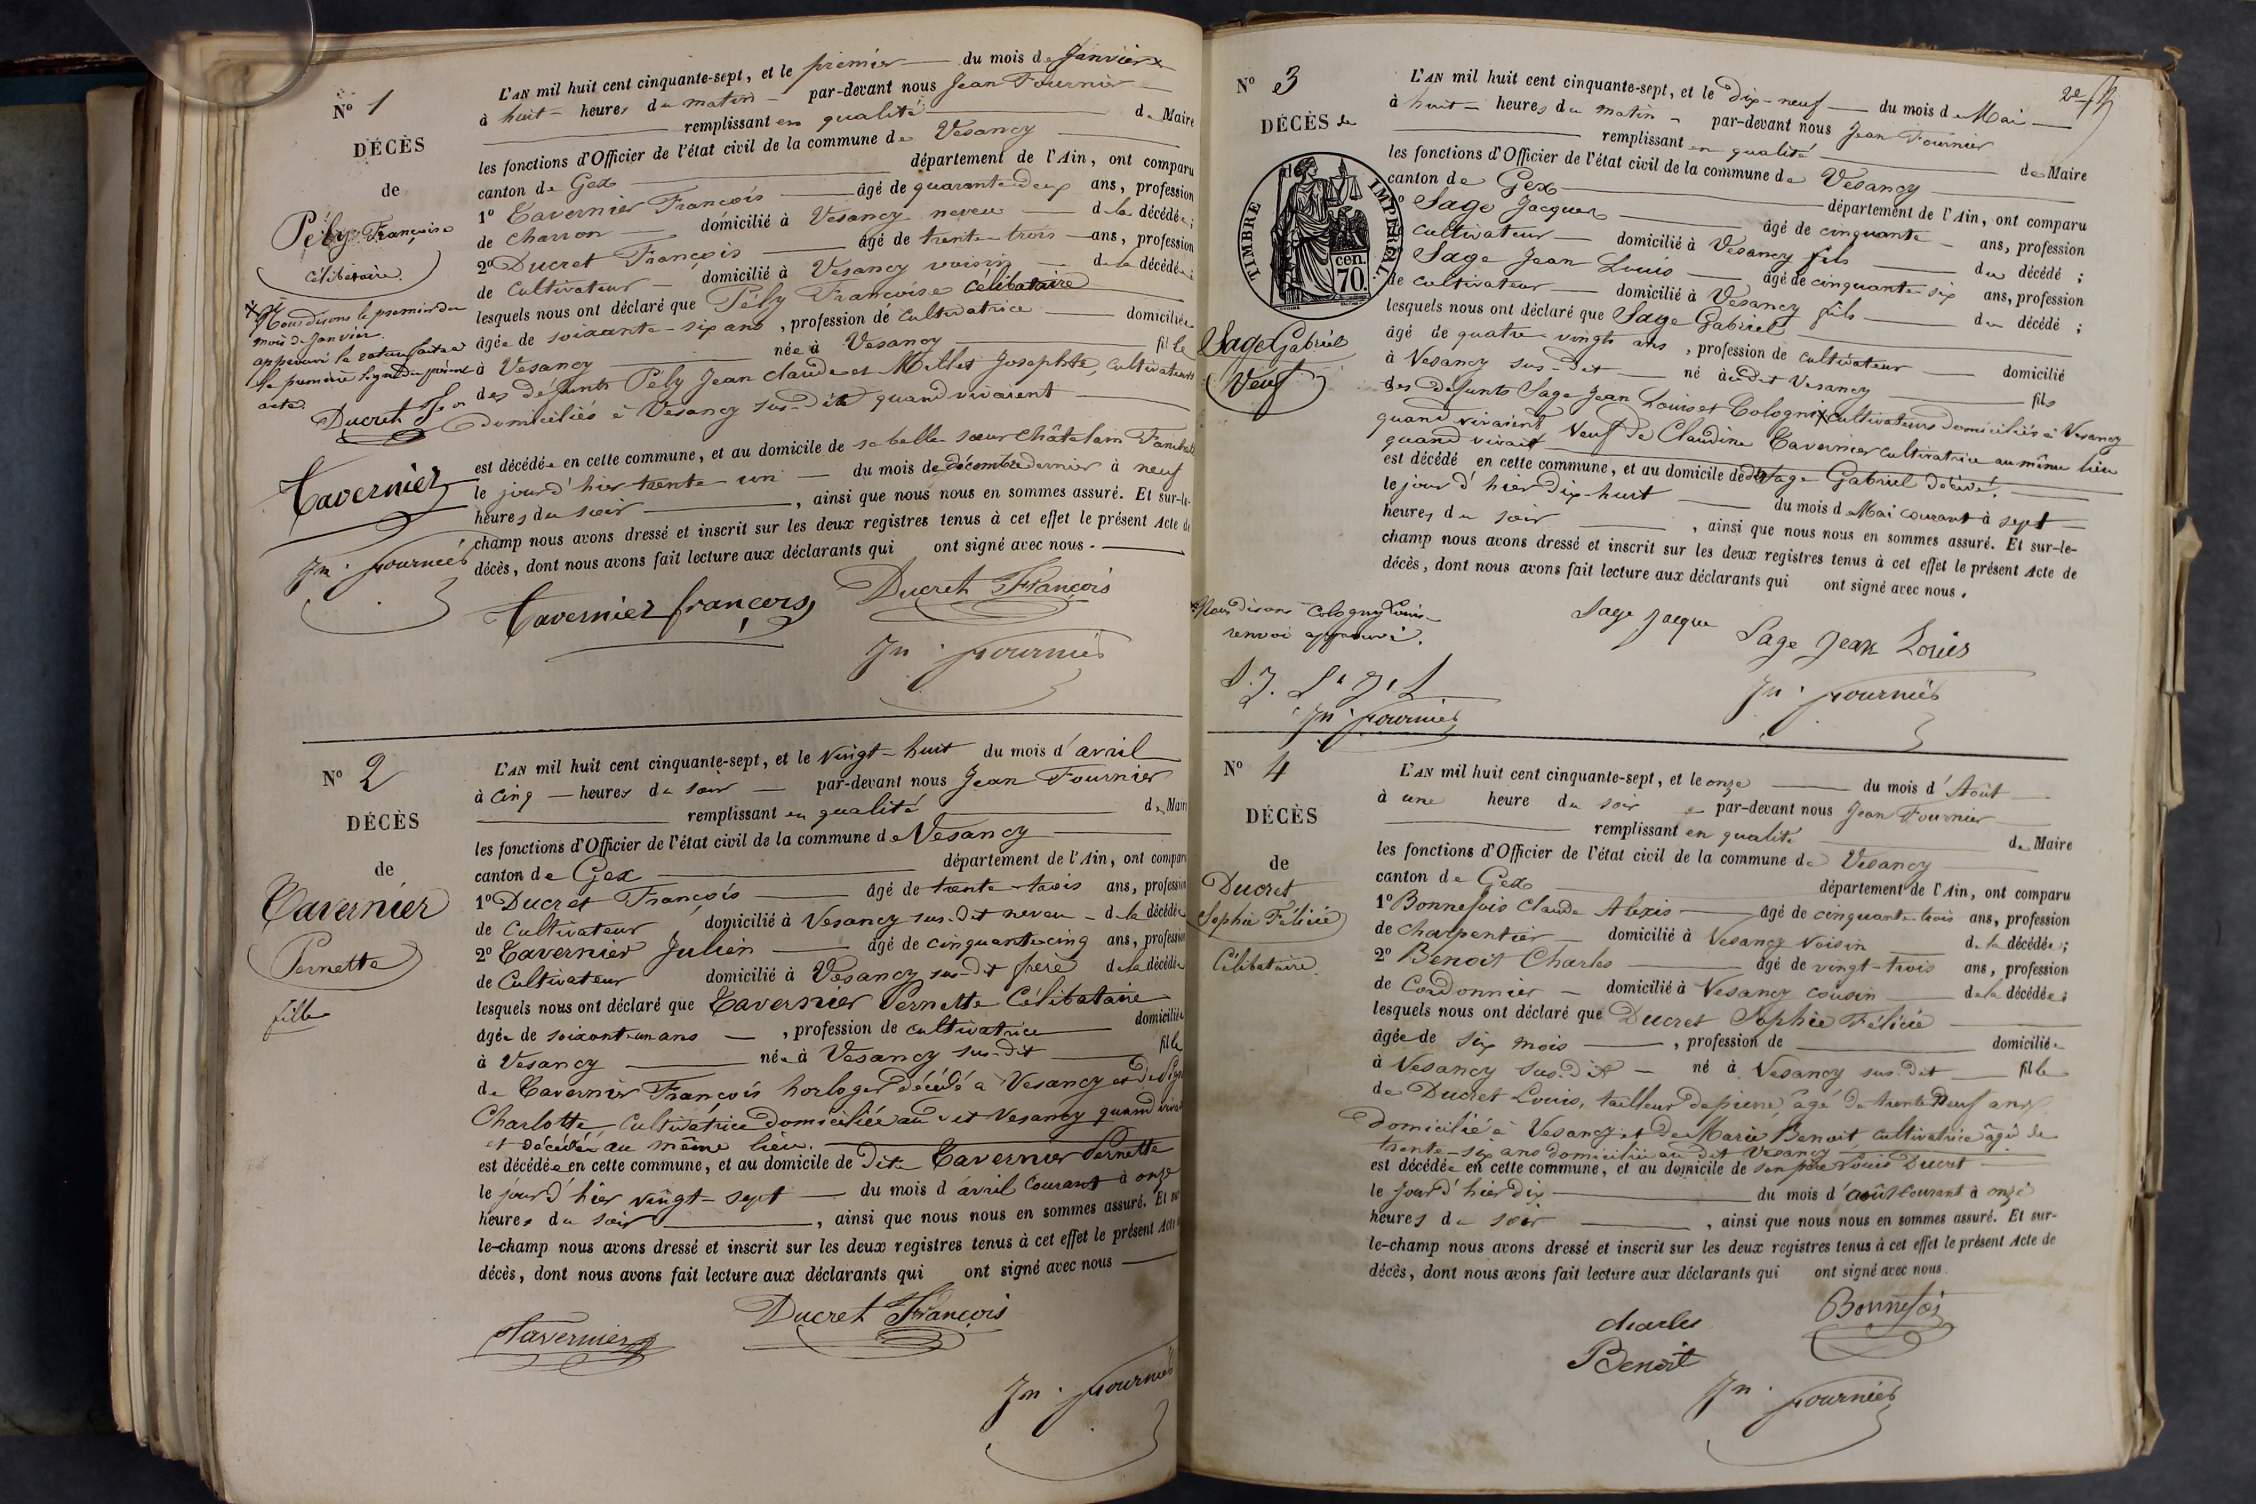 N° 1
DÉCÈS
de
Pély Françoise
célibataire.
Nous disons le premier du
mois de Janvier
approuvé la rature faite à
la première ligne du présent
acte.
Ducret f.
Tavernier
Jn. Fournier
L'AN mil huit cent cinquante-sept, et le premier du mois de Janvier
à huit heures du matin par-devant nous Jean Fournier
remplissant en qualité de Maire
les fonctions d'Officier de l'état civil de la commune de Vesancy
canton de Gex département de l'Ain, ont comparu
1° Tavernier François âgé de quarante deux ans, profession
de Charron domicilié à Vesancy neveu de la décédée;
2° Ducret François âgé de trente-trois ans, profession
de Cultivateur domicilié à Vesancy voisin de la décédée;
lesquels nous ont déclaré que Pély Françoise célibataire
âgée de soixante-six ans, profession de cultivatrice domiciliée
à Vesancy née à Vesancy fille
des défunts Pély Jean Claude et Millet Josephte, cultivateurs
domiciliés à Vesancy sus-dit quand vivaient
est décédée en cette commune, et au domicile de sa belle-sœur Châtelain
le jour d'hier trente un du mois de décembre dernier à neuf
heures du soir, ainsi que nous nous en sommes assuré. Et sur-le-
champ nous avons dressé et inscrit sur les deux registres tenus à cet effet le présent Acte de
décès, dont nous avons fait lecture aux déclarants qui ont signé avec nous.
Tavernier françois Ducret François
Jn. Fournier
N° 2
DÉCÈS
de
Tavernier
Pernette
fille
L'AN mil huit cent cinquante-sept, et le vingt-huit du mois d'avril
à cinq heures du soir par-devant nous Jean Fournier
remplissant en qualité de Maire
les fonctions d'Officier de l'état civil de la commune de Vesancy
canton de Gex département de l'Ain, ont comparu
1° Ducret François âgé de trente-trois ans, profession
de Cultivateur domicilié à Vesancy sus-dit neveu de la décédée
2° Tavernier Julien âgé de cinquante-cinq ans, profession
de Cultivateur domicilié à Vesancy sus-dit frère de la décédée
lesquels nous ont déclaré que Tavernier Pernette Célibataire
âgée de soixant-un ans, profession de cultivatrice domiciliée
à Vesancy née à Vesancy sus-dit fille
de Tavernier François horloger décédé à Vesancy et de
Charlotte Cultivatrice domiciliée au dit Vesancy quand vivait
et décédée au même lieu.
est décédée en cette commune, et au domicile de dite Tavernier Pernette
le jour d'hier vingt-sept du mois d'avril courant à onze
heures du soir, ainsi que nous nous en sommes assuré. Et sur
le-champ nous avons dressé et inscrit sur les deux registres tenus à cet effet le présent Acte
décès, dont nous avons fait lecture aux déclarants qui ont signé avec nous
Tavernier Ducret François
Jn. Fournier
N° 3
DÉCÈS de
TIMBRE IMPÉRIAL
70. cen.
Sage Gabriel
Veuf
L'AN mil huit cent cinquante-sept, et le dix-neuf du mois de Mai
à huit heures du matin par-devant nous Jean Fournier
remplissant en qualité de Maire
les fonctions d'Officier de l'état civil de la commune de Vesancy
canton de Gex département de l'Ain, ont comparu
Sage Jacques âgé de cinquante ans, profession
cultivateur domicilié à Vesancy fils du décédé;
Sage Jean Louis âgé de cinquante six ans, profession
de cultivateur domicilié à Vesancy fils du décédé;
lesquels nous ont déclaré que Sage Gabriel
âgé de quatre vingts ans, profession de cultivateur domicilié
à Vesancy sus-dit né au dit Vesancy fils
des défunts Sage Jean Louis et Cologni cultivateurs domiciliés à Vesancy
quand vivaient Veuf de Claudine Tavernier cultivatrice au même lieu
quand vivait
est décédé en cette commune, et au domicile de dit Sage Gabriel décédé.
le jour d'hier dix-huit du mois de Mai courant à sept
heures du soir, ainsi que nous nous en sommes assuré. Et sur-le-
champ nous avons dressé et inscrit sur les deux registres tenus à cet effet le présent Acte de
décès, dont nous avons fait lecture aux déclarants qui ont signé avec nous.
Nous disons Cologny Louise
renvoi approuvé.
S. J. S. J. L
Jn. Fournier
Sage Jacque Sage Jean Louis
Jn. Fournier
N° 4
DÉCÈS
de
Ducret
Sophie Félicie
Célibataire
L'AN mil huit cent cinquante-sept, et le onze du mois d'Août
à une heure du soir par-devant nous Jean Fournier
remplissant en qualité de Maire
les fonctions d'Officier de l'état civil de la commune de Vesancy
canton de Gex département de l'Ain, ont comparu
1° Bonnefois Claude Alexis âgé de cinquante-trois ans, profession
de charpentier domicilié à Vesancy Voisin de la décédée;
2° Benoit Charles âgé de vingt-trois ans, profession
de Cordonnier domicilié à Vesancy cousin de la décédée;
lesquels nous ont déclaré que Ducret Sophie Félicie
âgée de six mois, profession de domiciliée
à Vesancy sus-dit né à Vesancy sus-dit fille
de Ducret Louis, tailleur de pierre âgé de trente neuf ans
domicilié à Vesancy et de Marie Benoit, cultivatrice âgée de
trente-six ans domiciliée au dit Vesancy
est décédée en cette commune, et au domicile de son père Louis Ducret
le jour d'hier dix du mois d'août courant à onze
heures du soir, ainsi que nous nous en sommes assuré. Et sur-
le-champ nous avons dressé et inscrit sur les deux registres tenus à cet effet le présent Acte de
décès, dont nous avons fait lecture aux déclarants qui ont signé avec nous.
Charles Bonnefoi
Benoit
Jn. Fournier